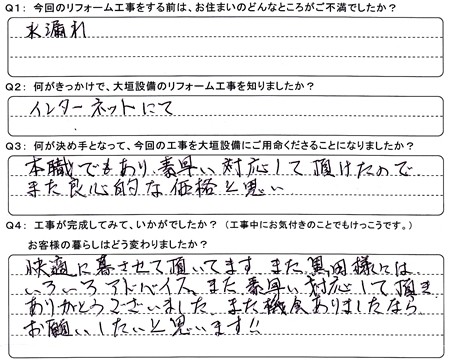 Q1: 今回のリフォーム工事をする前は、お住まいのどんなところがご不満でしたか?
水漏れ
Q2: 何がきっかけで、大垣設備のリフォーム工事を知りましたか?
インターネットにて
Q3: 何が決め手となって、今回の工事を大垣設備にご用命くださることになりましたか?
本職でもあり 素早い対応して頂けたので
また良心的な価格と思い
Q4: 工事が完成してみて、いかがでしたか? (工事中にお気付きのことでもけっこうです。)
お客様の暮らしはどう変わりましたか?
快適に暮させて頂いてます また 黒田様には
いろいろアドバイス、また素早い対応して頂き
ありがとうございました また機会ありましたなら
お願いしたいと思います!!